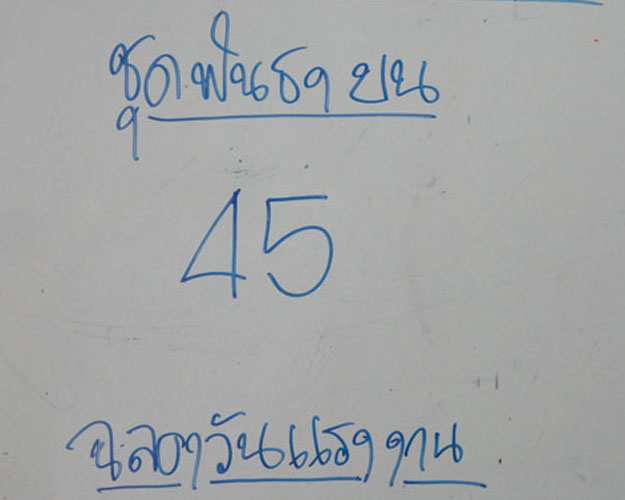 ชุดฟันธง บน
45
ฉลองวันแรงงาน